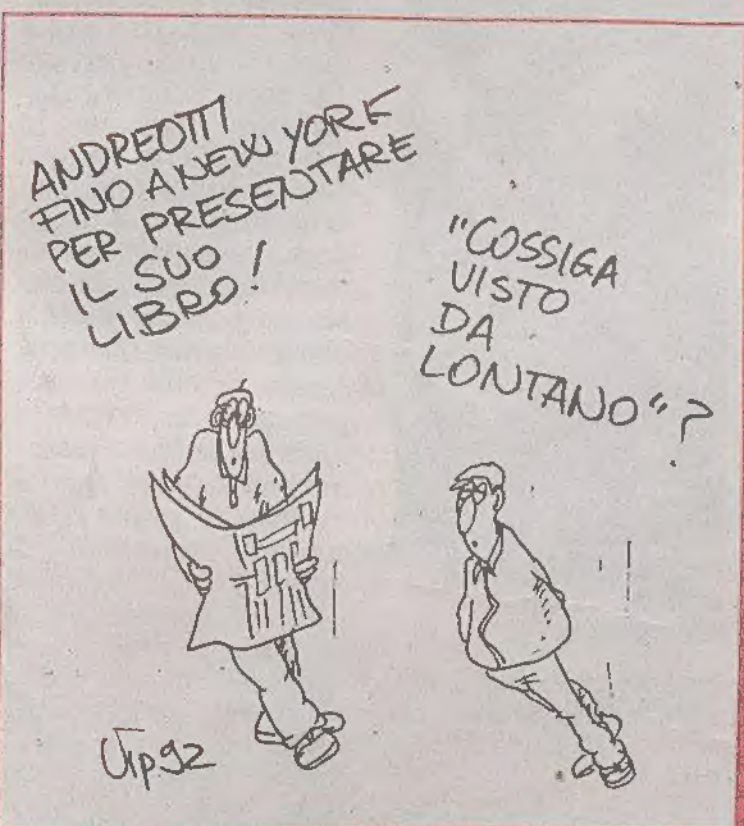 ANDREOTTI
FINO A NEW YORK
PER PRESENTARE
IL SUO
LIBRO!
"COSSIGA
VISTO
DA
LONTANO"?
Vip 92